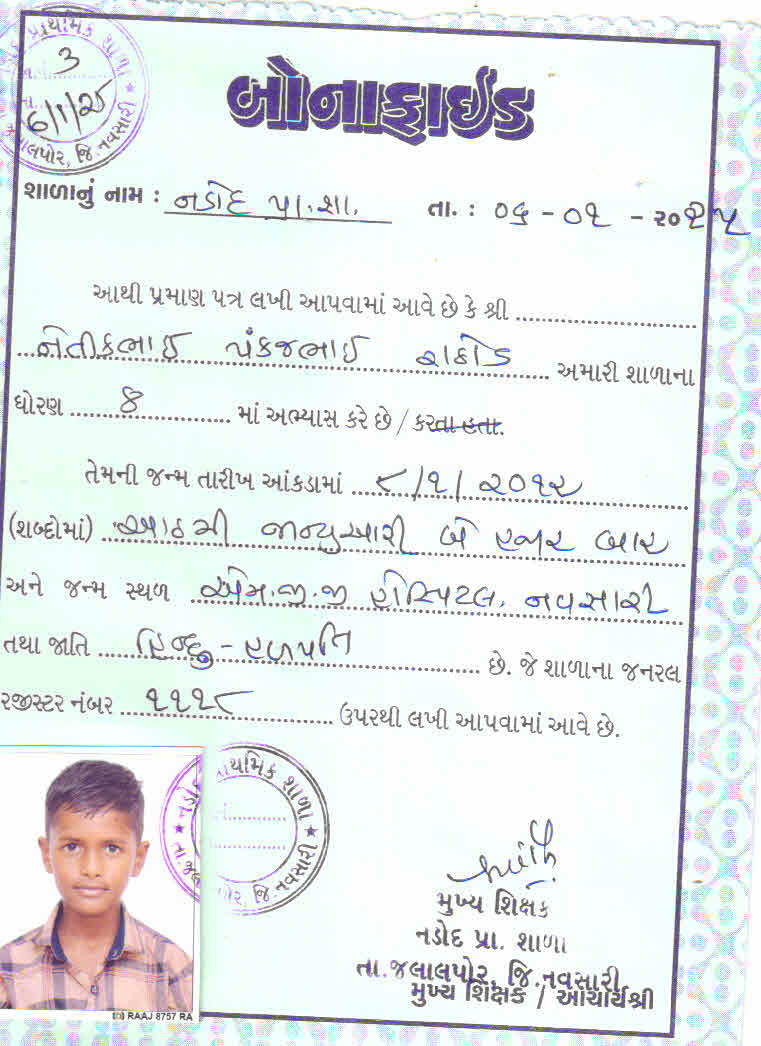 પ્રાથમિક શાળા
3
6/1/25
જલાલપોર, જિ.નવસારી
બોનાફાઈડ
શાળાનું નામ : નડોદ પ્રા.શા. તા. : ૦૬ - ૦૧ - ૨૦૨૫
આથી પ્રમાણ પત્ર લખી આપવામાં આવે છે કે શ્રી
નૈતીકભાઈ પંકજભાઈ રાઠોડ અમારી શાળાના
ધોરણ ૭ માં અભ્યાસ કરે છે / કરતા હતા.
તેમની જન્મ તારીખ આંકડામાં ૮/૧/૨૦૧૨
(શબ્દોમાં) આઠમી જાન્યુઆરી બે હજાર બાર
અને જન્મ સ્થળ એમ.જી.જી હોસ્પિટલ, નવસારી
તથા જાતિ હિન્દુ - હળપતિ છે. જે શાળાના જનરલ
રજીસ્ટર નંબર ૧૧૧૮ ઉપરથી લખી આપવામાં આવે છે.
પ્રાથમિક શાળા
તા.જલાલપોર, જિ.નવસારી
મુખ્ય શિક્ષક
નડોદ પ્રા. શાળા
તા.જલાલપોર, જિ.નવસારી
મુખ્ય શિક્ષક / આચાર્યશ્રી
RAAJ 8757 RA